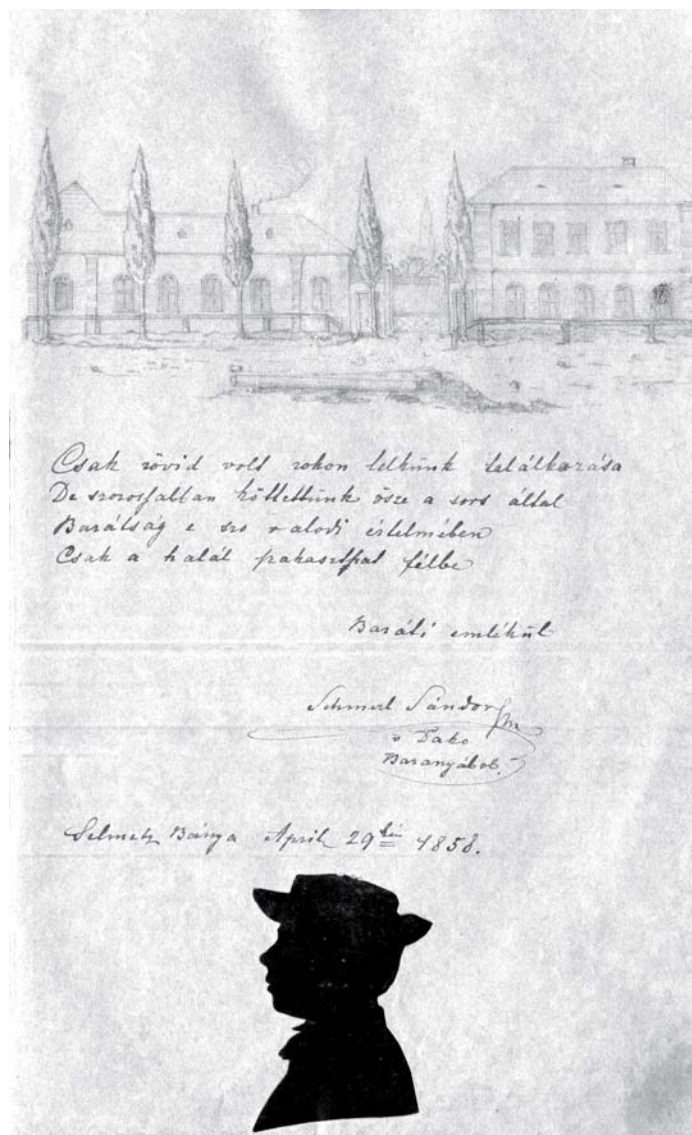 Csak rövid volt rokon lelkünk találkozása
De szorosabban köttettünk össze a sors által
Barátság e szó valodi értelmében
Csak a halál félbe
Baráti emlékül
Schmerl Sándor
Baranyából.
Selmetz Bánya April 29kén 1858.